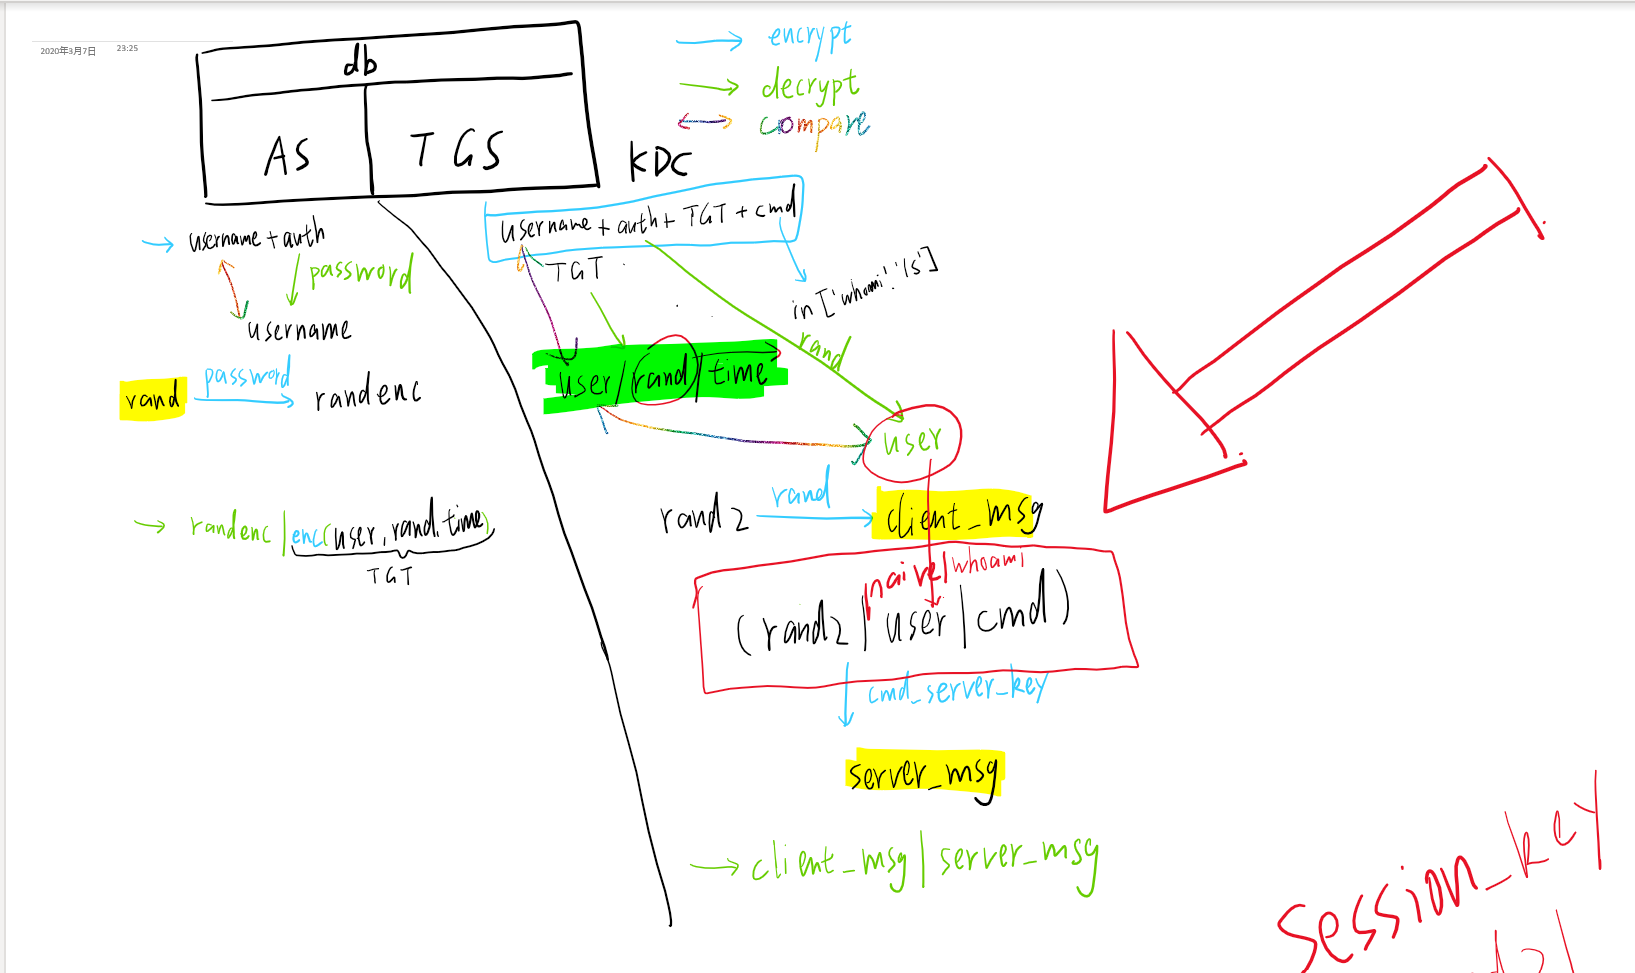 2020年3月7日 23:25
db
AS
TGS
KDC
encrypt
decrypt
compare
username + auth
password
username
rand
password
randenc
randenc | enc(user, rand, time)
TGT
username + auth + TGT + cmd
TGT
in ['whoami' 'ls']
rand
user / rand / time
user
rand2
rand
client_msg
naive | whoami
(rand2 | user | cmd)
cmd_server_key
server_msg
client_msg | server_msg
session_key